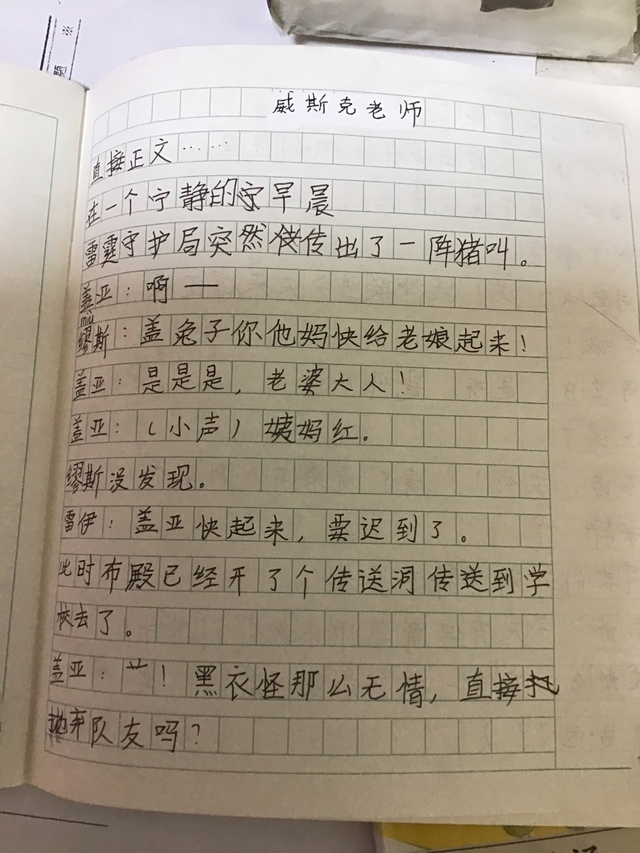 威斯克老师
直接正文……
在一个宁静的早晨
雷霆守护局突然传出了一阵猪叫。
盖亚：啊——
缪斯：盖兔子你他妈快给老娘起来！
盖亚：是是是，老婆大人！
盖亚：（小声）姨妈红。
缪斯没发现。
雷伊：盖亚快起来，要迟到了。
此时布殿已经开了个传送洞传送到学
校去了。
盖亚：艹！黑衣怪那么无情，直接
抛弃队友吗？